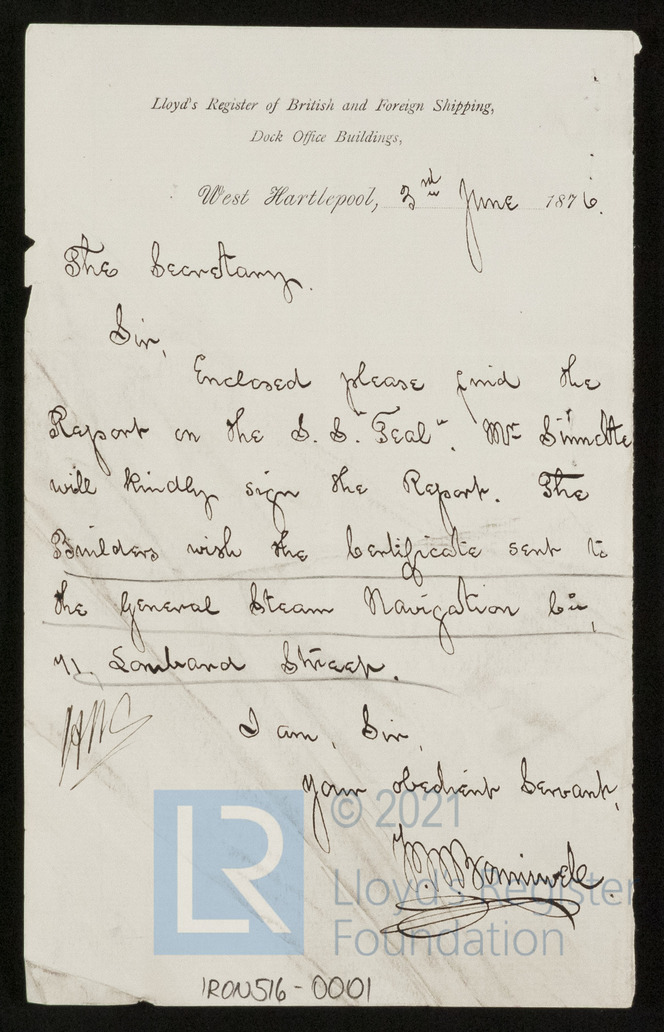 Lloyd's Register of British and Foreign Shipping,
Dock Office Buildings,
West Hartlepool, 3rd June 1876.
The Secretary.
Sir,
Enclosed please find the
Report on the S.S. "Teal". Mr Sinnette
will kindly sign the Report. The
Builders wish the Certificate sent to
the General Steam Navigation Co.,
71, Lombard Street.
I am, Sir,
your obedient Servant,
LR
© 2021
Lloyd's Register
Foundation
IRON516-0001